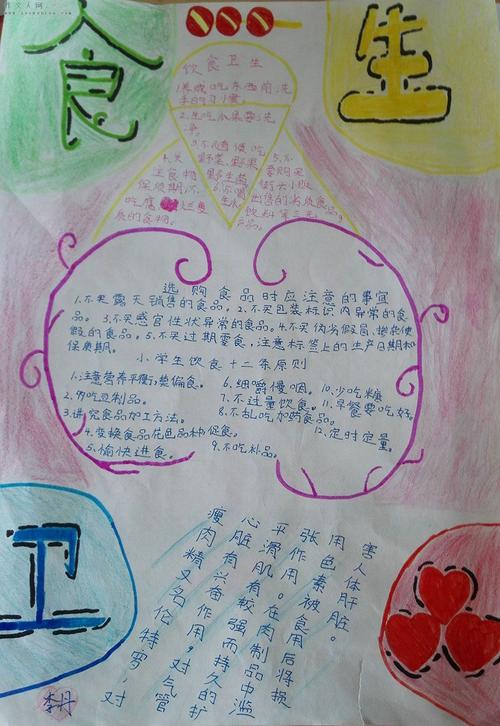 食
生
饮食卫生
1.养成吃东西前洗
手的习惯。
2.生吃瓜果要洗
净。
3.不随便吃
野菜、野果
4.关
主食物
保质期,不
吃腐
质的食物。
5.不
要购买
街头小贩
出售的劣质食品,
饮料
选购食品时应注意的事宜
1.不买露天销售的食品。2.不买包装标识内异常的食
品。3.不买感官性状异常的食品。4.不买伪劣假冒、掺杂使
假的食品。5.不买过期零食,注意标签上的生产日期和
保质期。
小学生饮食十二条原则
1.注意营养平衡,禁偏食。
2.常吃豆制品。
3.讲究食品加工方法。
4.变换食品花色品种,促食。
5.愉快进食。
6.细嚼慢咽。
7.不过量饮食。
8.不乱吃加药食品。
9.不吃补品。
10.少吃糖
11.早餐要吃好。
12.定时定量。
卫
害人体肝脏。
用色素被食用后将损
张作用。在肉制品中滥
平滑肌有较强而持久的扩
心脏有兴奋作用,对气管
瘦肉精又名伦特罗,对
李丹